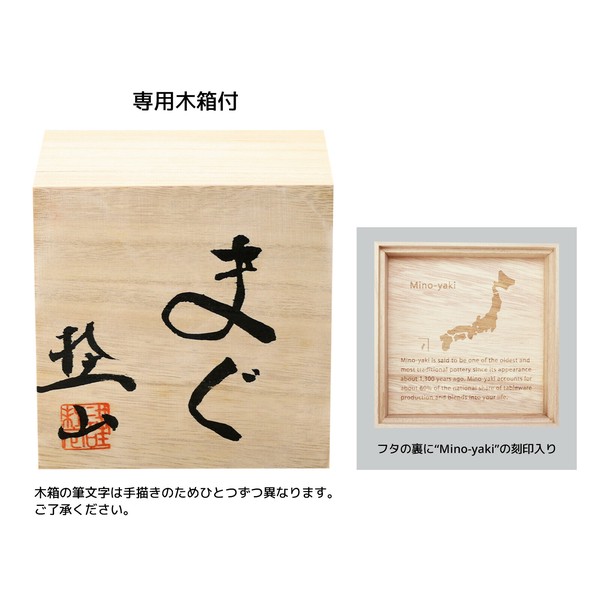 専用木箱付
まぐ
山
Mino-yaki
Mino-yaki is said to be one of the oldest and
most traditional pottery since its appearance
about 1,300 years ago. Mino-yaki accounts for
about 60% of the national share of tableware
production and blends into your life.
フタの裏に“Mino-yaki”の刻印入り
木箱の筆文字は手描きのためひとつずつ異なります。
ご了承ください。